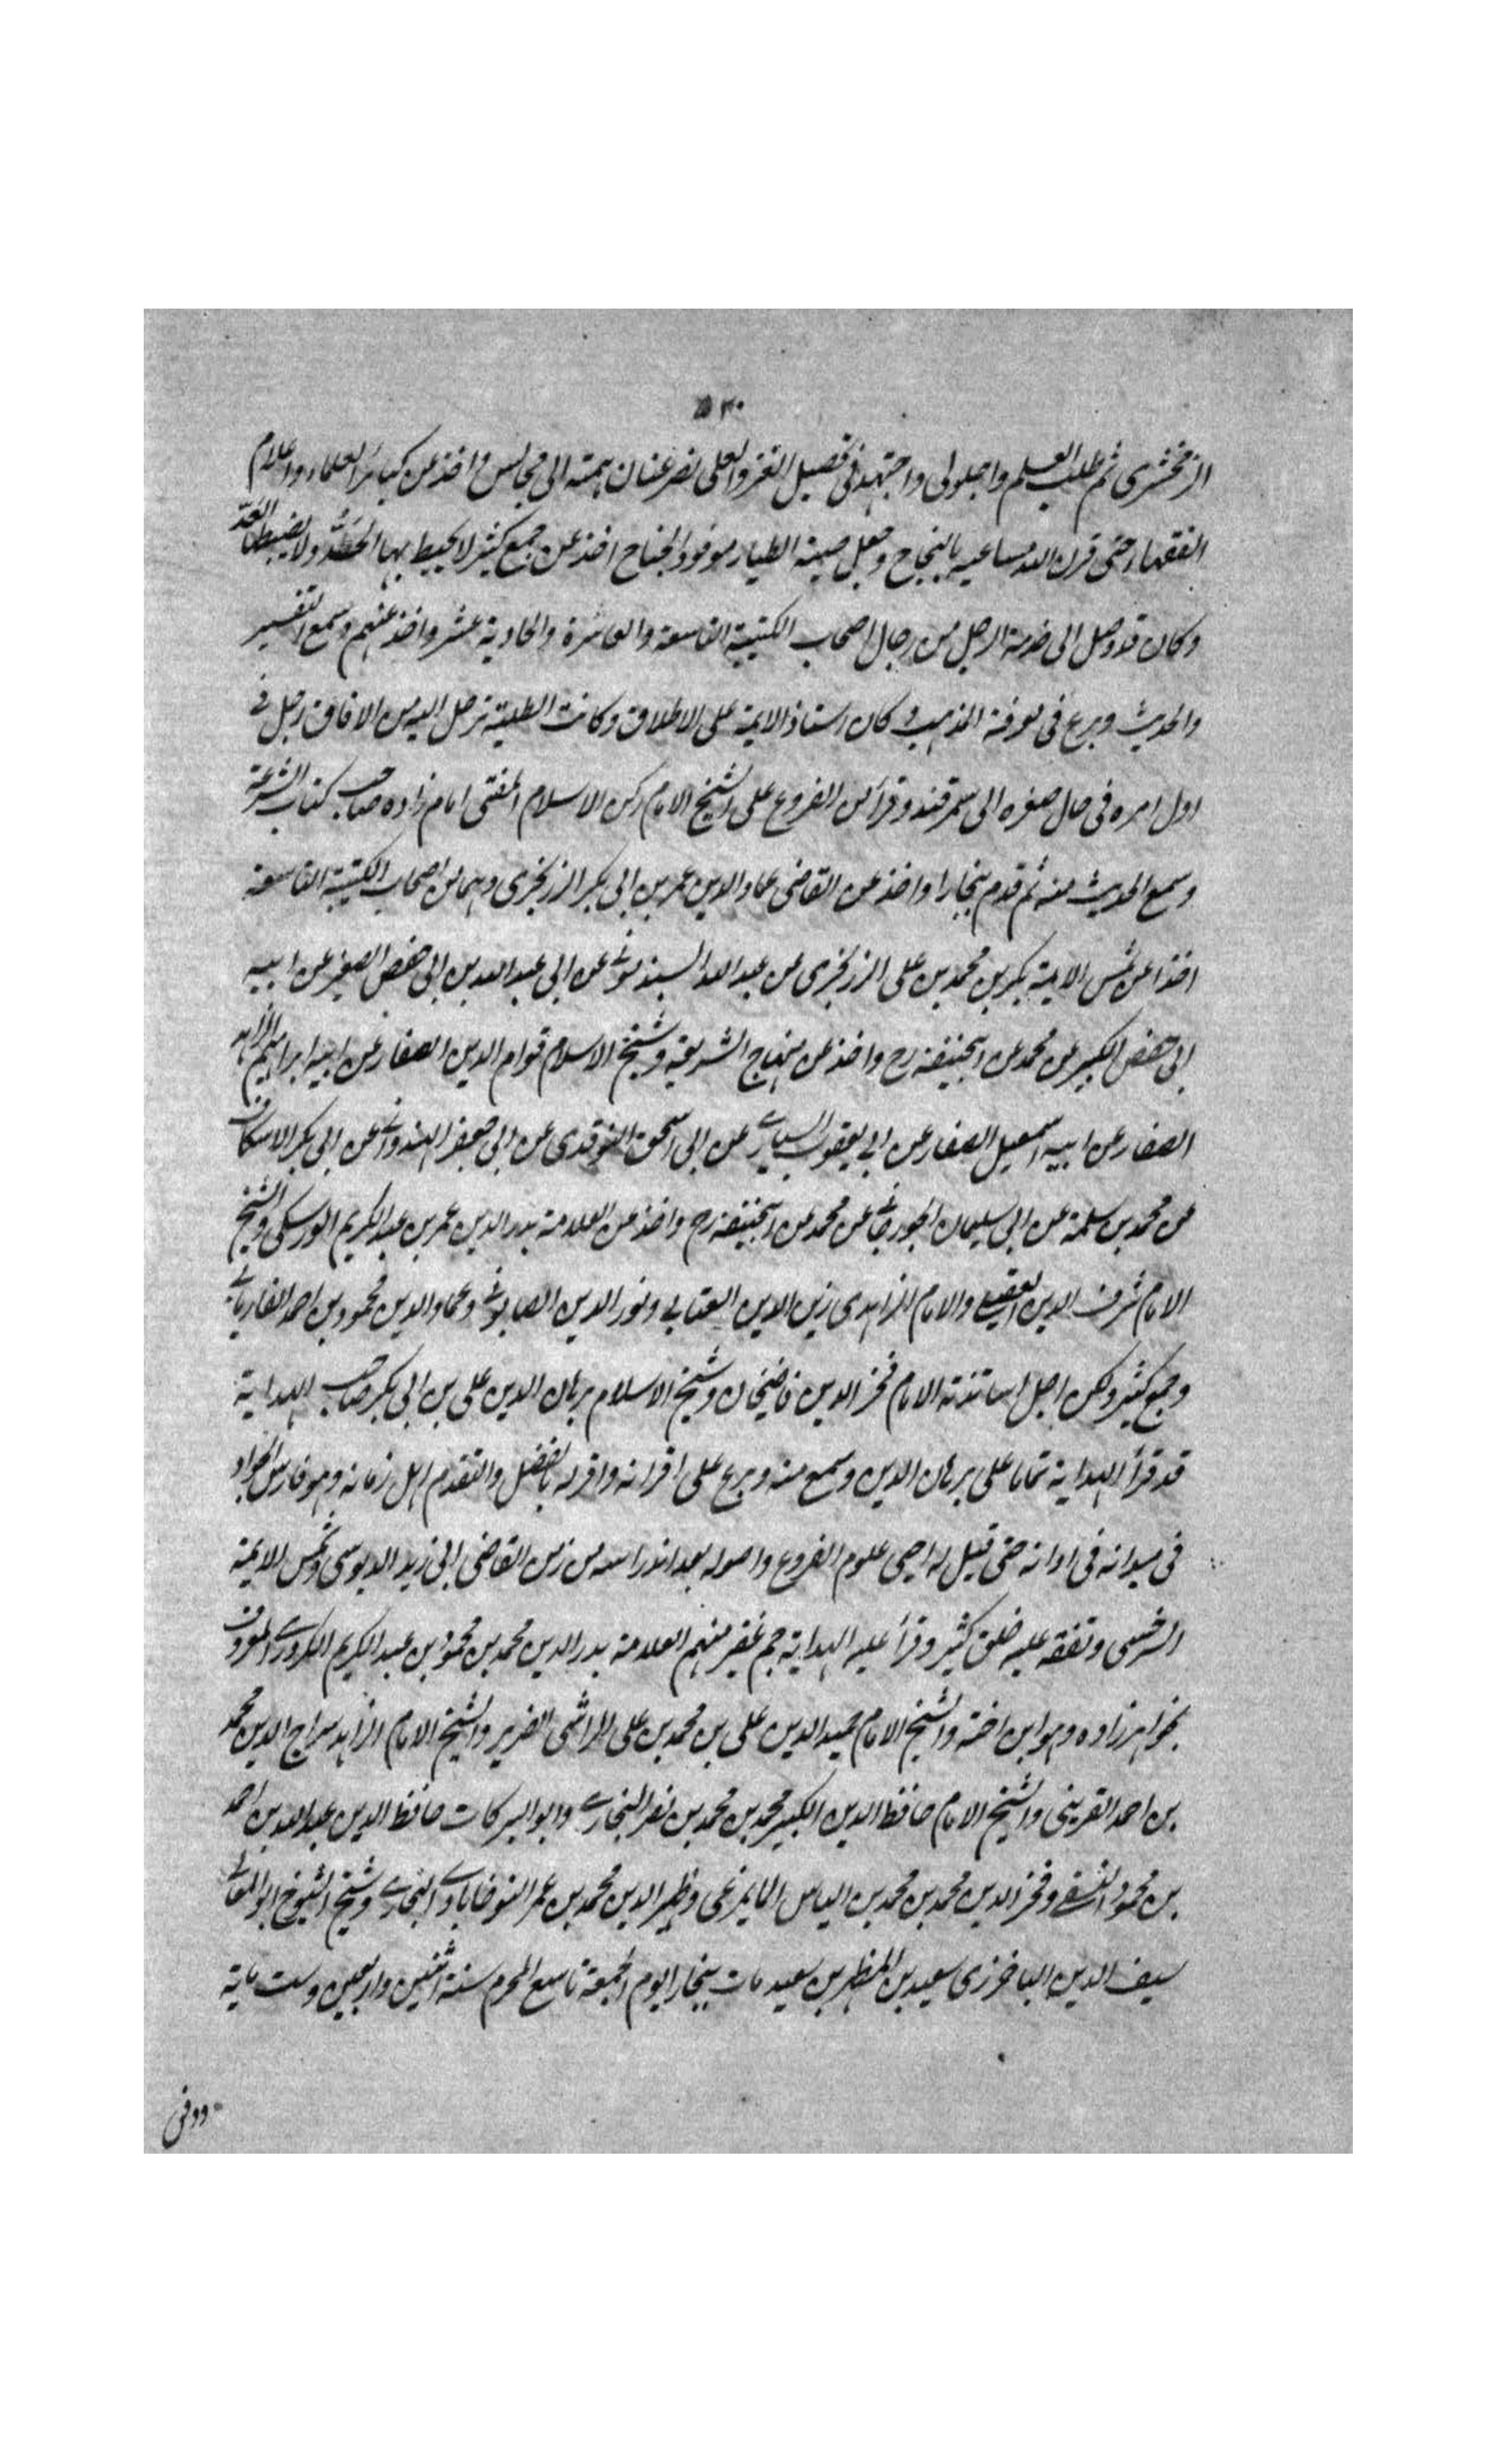 ٥٣٠
الزمخشرى ثم طلب العلم واجلولى واجتهد فى تحصيل العز والعلى نصر عنان همته الى مجالس واخذ عن كبائر العلماء واعلام
الفقهاء حتى قرن الله مساعيه بالنجاح وجعل صيته الطيار موفور الجناح اخذ عن جمع كثير لا يحيط بها الحَدُّ ولا يضبطها العَدّ
وكان قد وصل الى خدمة الرجل من رجال اصحاب الكتيبة التاسعة والعاشرة والحادية عشر واخذ عنهم وسمع التفسير
والحديث وبرع فى معرفة المذهب وكان استاذ الايمة على الاطلاق وكانت الطلبة ترحل اليه من الافاق رحل فى
اول امره فى حال صغره الى سمرقند وقرأ من الفروع على الشيخ الامام ركن الاسلام المفتى امام زاده صاحب كتاب الشرعة
وسمع الحديث منه ثم قدم بخارا واخذ عن القاضى عماد الدين عمر بن ابى بكر الزرنجرى وهما من اصحاب الكتيبة التاسعة
اخذا عن شمس الايمة بكر بن محمد بن على الزرنجرى عن عبد الله السبذمونى عن ابى عبد الله بن ابى حفص الصغير عن ابيه
ابى حفص الكبير عن محمد عن ابيحنيفة رح واخذ عن منهاج الشريعة وشيخ الاسلام قوام الدين الصفار عن ابيه ابراهيم الزاهد
الصفار عن ابيه اسمعيل الصفار عن ابى يعقوب السيارى عن ابى اسحق النوقدى عن ابى جعفر الهندوانى عن ابى بكر الاسكاف
عن محمد بن سلمة عن ابى سليمان الجورجانى عن محمد عن ابيحنيفة رح واخذ عن العلامة بدر الدين عمر بن عبد الكريم الورسكى والشيخ
الامام شرف الدين العقيلى والامام الزاهدى زين الدين العتابى ونور الدين الصابونى وعماد الدين محمود بن احمد الفاريابى
وجمع كثير ولكن اجل اساتذته الامام فخر الدين قاضيخان وشيخ الاسلام برهان الدين على بن ابى بكر صاحب الهداية
قد قرأ الهداية تماما على برهان الدين وسمع منه وبرع على اقرانه واقر له بالفضل والتقدم اهل زمانه وهو فارس الجواد
فى ميدانه فى اوانه حتى قيل له احيى علوم الفروع واصوله بعد اندراسه من زمن القاضى ابى زيد الدبوسى وشمس الايمة
السرخسى وتفقه عليه خلق كثير وقرأ عليه الهداية جم غفير منهم العلامة بدر الدين محمد بن محمود بن عبد الكريم الكردرى المعروف
بخواهرزاده وهو ابن اخته والشيخ الامام حميد الدين على بن محمد بن على الرامشى الضرير والشيخ الامام الزاهد سراج الدين محمد
بن احمد القرينى والشيخ الامام حافظ الدين الكبير محمد بن محمد بن نصر البخارى وابو البركات حافظ الدين عبد الله بن احمد
بن محمود النسفى وفخر الدين محمد بن محمد بن الياس المايمرغى وظهير الدين محمد بن عمر النوحاباذى البخارى وشيخ الشيوخ ابو المعالى
سيف الدين الباخرزى سعيد بن المطهر بن سعيد مات ببخارا يوم الجمعة تاسع المحرم سنة اثنين واربعين وست ماية
ودفن